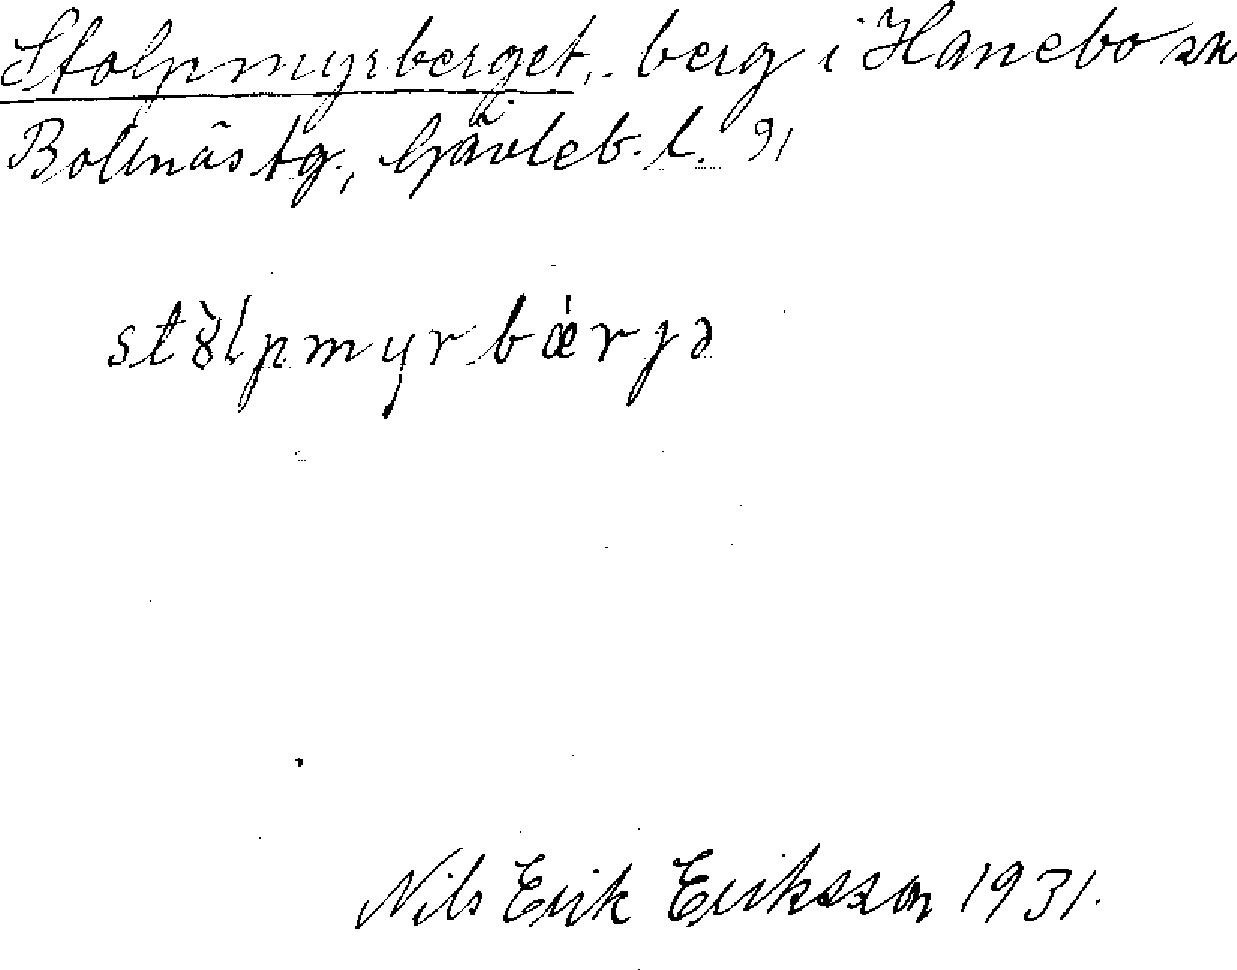 Stolpmyrberget, berg i Hanebo sn
Bollnäs tg., Gävleb. l. 91
stȣ̀lpmyrbǽrjə
Nils Erik Eriksson 1931.